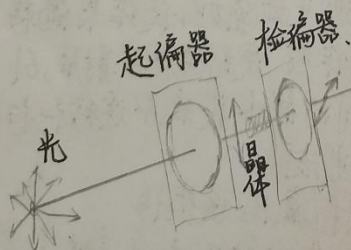 起偏器
检偏器、
光
晶体